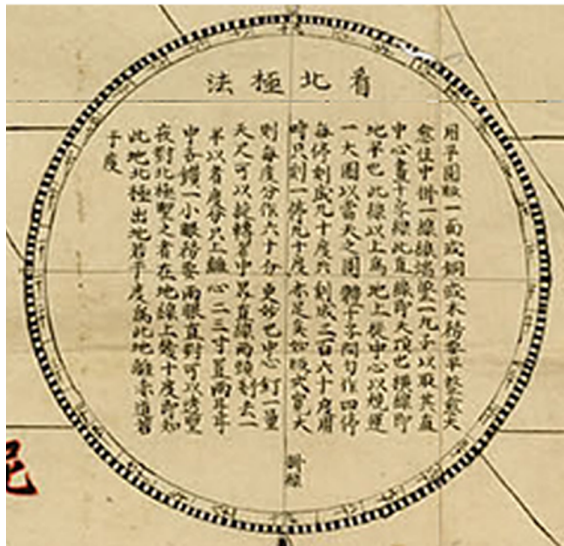 看北極法
用平圓版一面或銅或木務要平整愈大
愈佳中掛一線線端墜一丸子以取其直
中心畫十字線此直線即天頂也橫線即
地平也此線以上為地上從中心以規運
一大圈以當天之圓體十字間勻作四停
每停刻成九十度共刻成三百六十度用
時只刻一停九十度亦足矣如板寬大
則每度分作六十分更妙已中心釘一量
天尺可以旋轉著中界直線兩頭刻去一
半以看度分尺上離心二三寸置兩耳耳
中各鑽一小眼務要兩眼直對可以透望
夜對北極望之看在地線上幾十度即知
此地北極出地若干度為此地離赤道若
干度
掛線